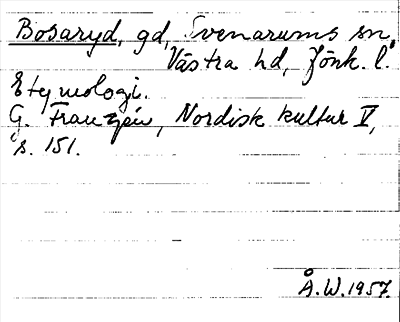 Bosaryd, gd, Svenarums sn,
Västra hd, Jönk. l.
Etymologi.
G. Franzén, Nordisk kultur V,
s. 151.
Å.W. 1957.